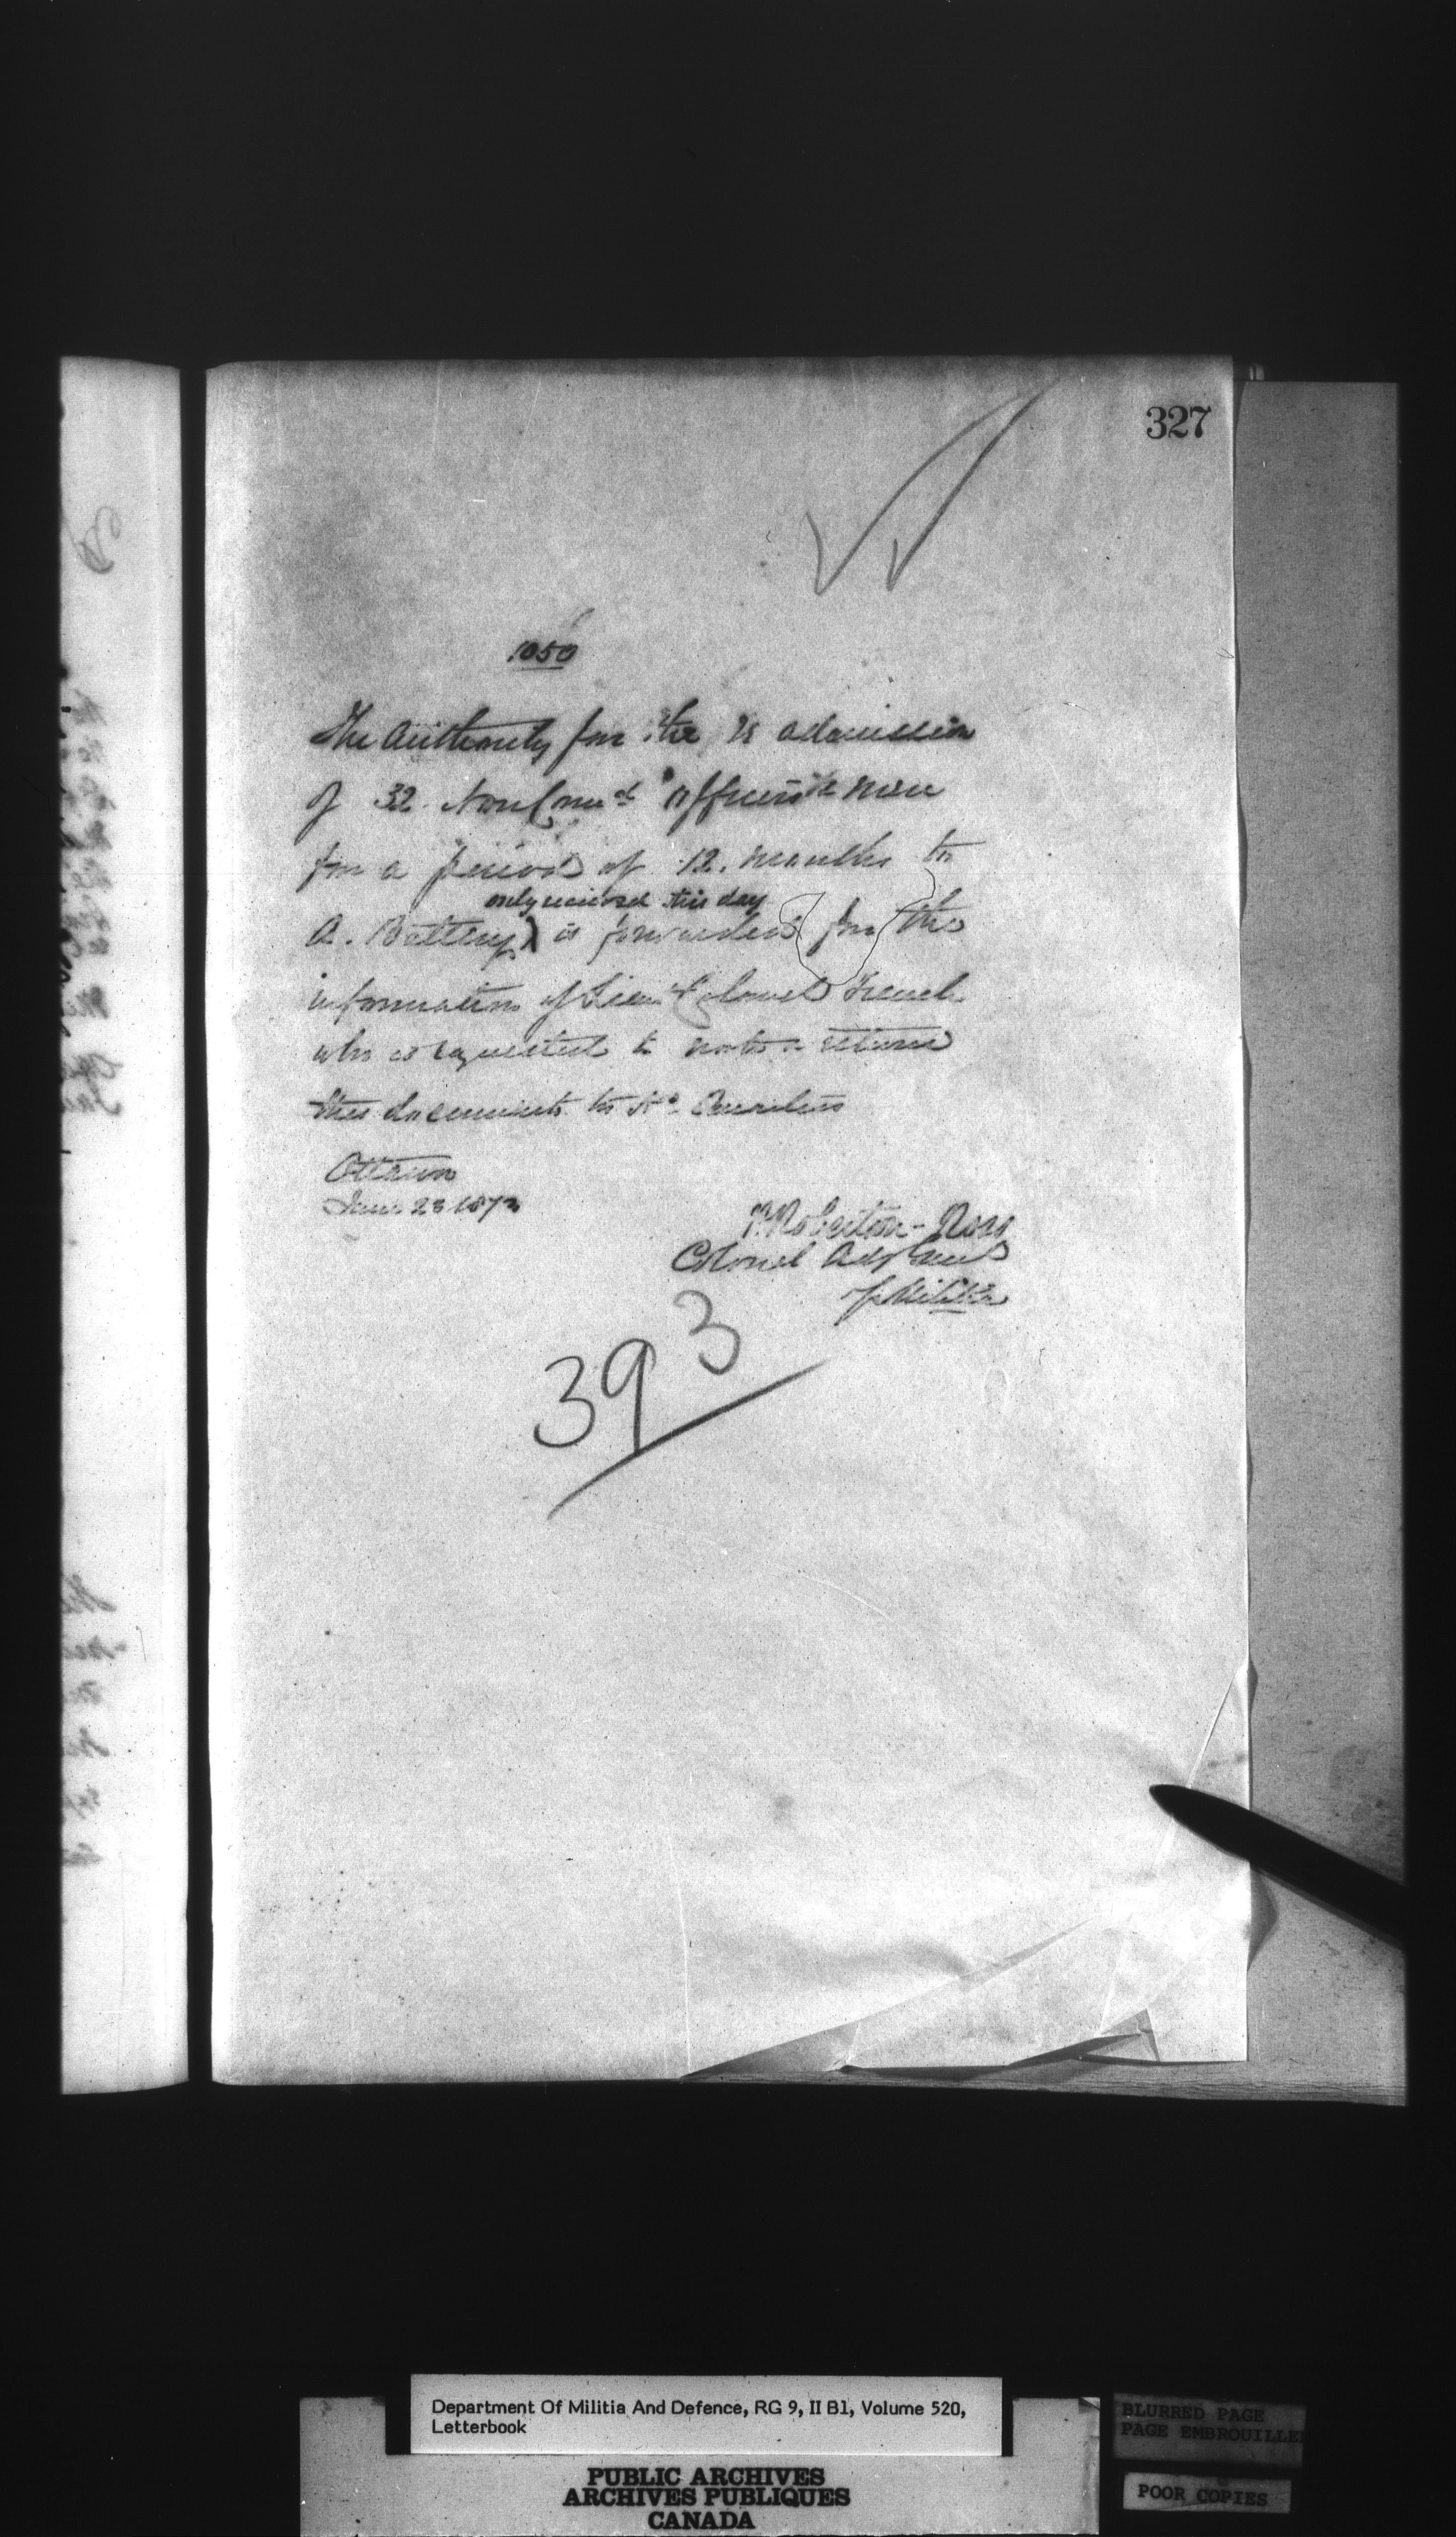 327
1050
The Authority for the re admission
of 32. Non Com^d officers & men
for a period of 12. months to
only received this day
A. Battery) is forwarded for the
information of Lieut Colonel French
who is requested to note & return
this documents to H^d Quarters
Ottawa
June 23 1873
P. Robertson-Ross
Colonel Adj Genl
of Militia
393
Department Of Militia And Defence, RG 9, II B1, Volume 520,
Letterbook
BLURRED PAGE
PAGE EMBROUILLE
PUBLIC ARCHIVES
ARCHIVES PUBLIQUES
CANADA
POOR COPIES